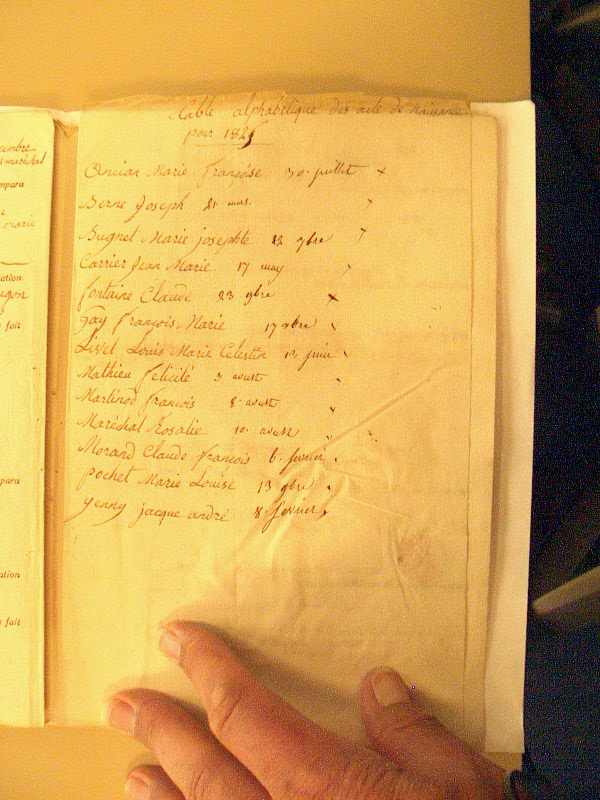 cembre
maréchal
mpara
marie
ation
fait
para
ation
fait
Table alphabetique des acte de naissance
pour 182
Marie françoise 30 juillet x
Berne Joseph 21
Bugnet Marie josephte 12 9bre
Carrier Jean Marie 17 may
fontaine Claude 23 9bre x
gay françois Marie 17 xbre
Louis Marie Celestin juin
Mathieu felicité 3 aoust
Martinod francois 8 aoust
Maréchal Rosalie 10 aoust
Morand Claude françois 6 fevrier
pochet Marie Louise 13 9bre
yenny jacque andré 8 fevrier